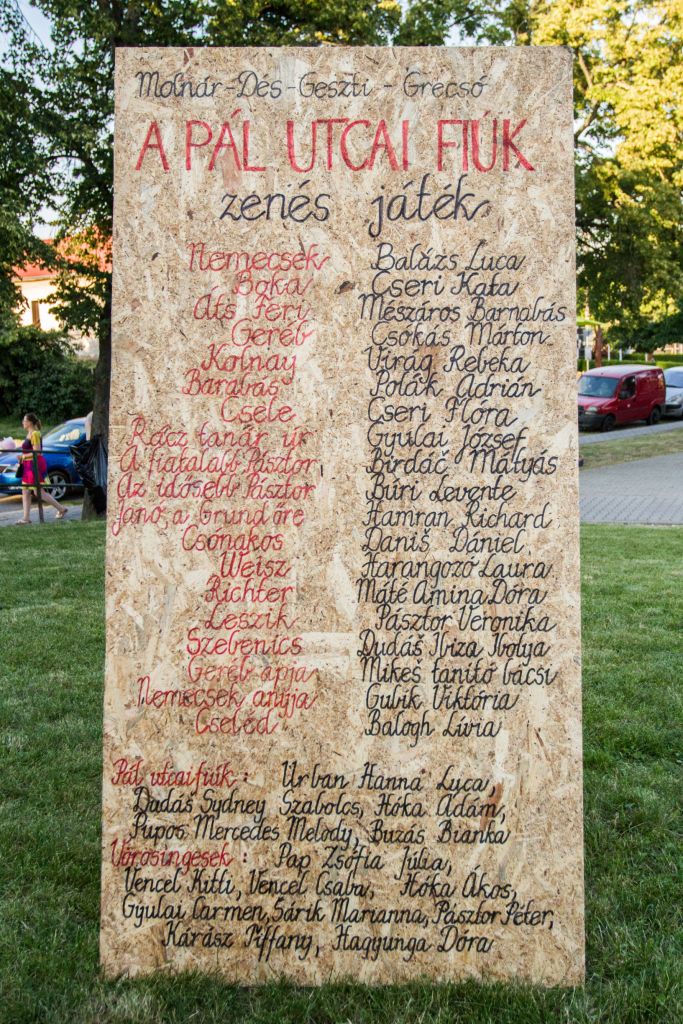 Molnár-Dés-Geszti-Grecsó
A PÁL UTCAI FIÚK
zenés játék
Nemecsek Balázs Luca
Boka Cseri Kata
Áts Feri Mészáros Barnabás
Geréb Csókás Márton
Kolnay Virág Rebeka
Barabás Polák Adrián
Csele Cseri Flóra
Rácz tanár úr Gyulai József
A fiatalabb Pásztor Birdáč Mátyás
Az idősebb Pásztor Búri Levente
Janó, a Grund őre Hamran Richard
Csónakos Daniš Dániel
Weisz Harangozó Laura
Richter Máté Amina Dóra
Leszik Pásztor Veronika
Szebenics Dudáš Ibiza Ibolya
Geréb apja Mikeš tanító bácsi
Nemecsek anyja Gubik Viktória
Cseléd Balogh Lívia
Pál utcai fiúk: Urban Hanna Luca,
Dudáš Sydney Szabolcs, Hóka Ádám,
Pupos Mercedes Melody, Buzás Bianka
Vörösingesek: Pap Zsófia Júlia,
Vencel Kitti, Vencel Csaba, Hóka Ákos,
Gyulai Carmen, Sárik Marianna, Pásztor Péter,
Kárász Tiffany, Hagyunga Dóra